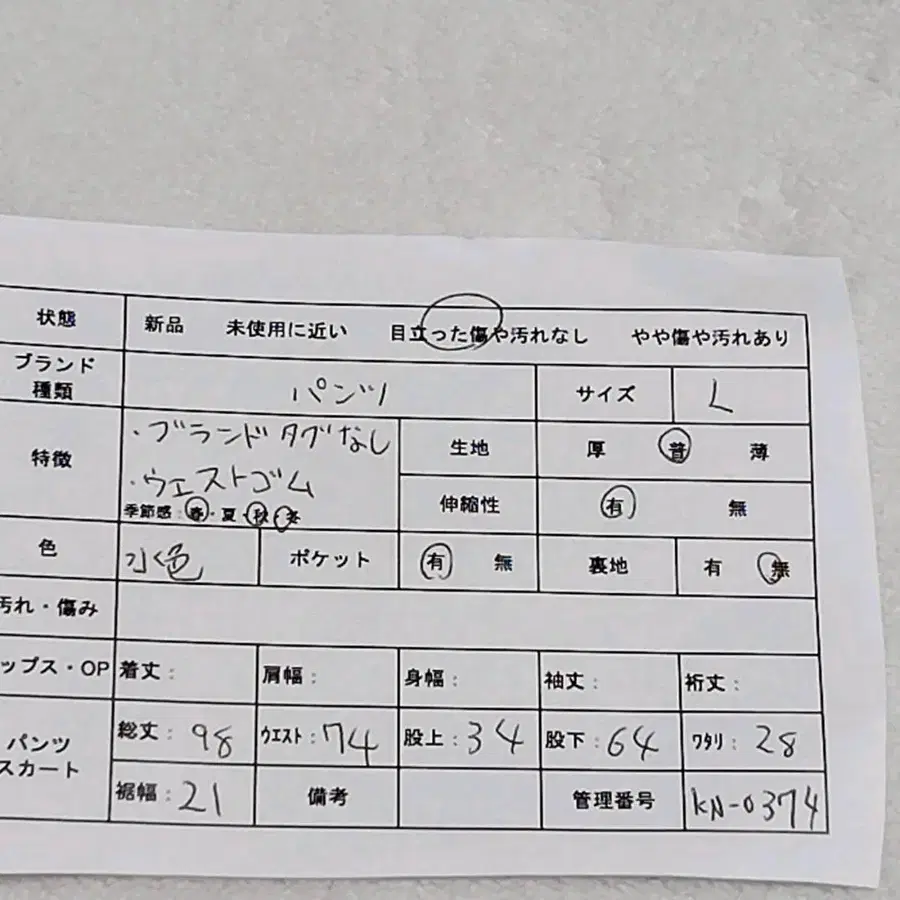 状態 新品 未使用に近い 目立った傷や汚れなし やや傷や汚れあり
ブランド
種類 パンツ サイズ L
特徴 ・ブランドタグなし 生地 厚 普 薄
・ウエストゴム 伸縮性 有 無
季節感:春・夏・秋・冬
色 水色 ポケット 有 無 裏地 有 無
汚れ・傷み
ップス・OP 着丈: 肩幅: 身幅: 袖丈: 裄丈:
パンツ
スカート 総丈: 98 ウエスト: 74 股上: 34 股下: 64 ワタリ: 28
裾幅: 21 備考 管理番号 KN-0374